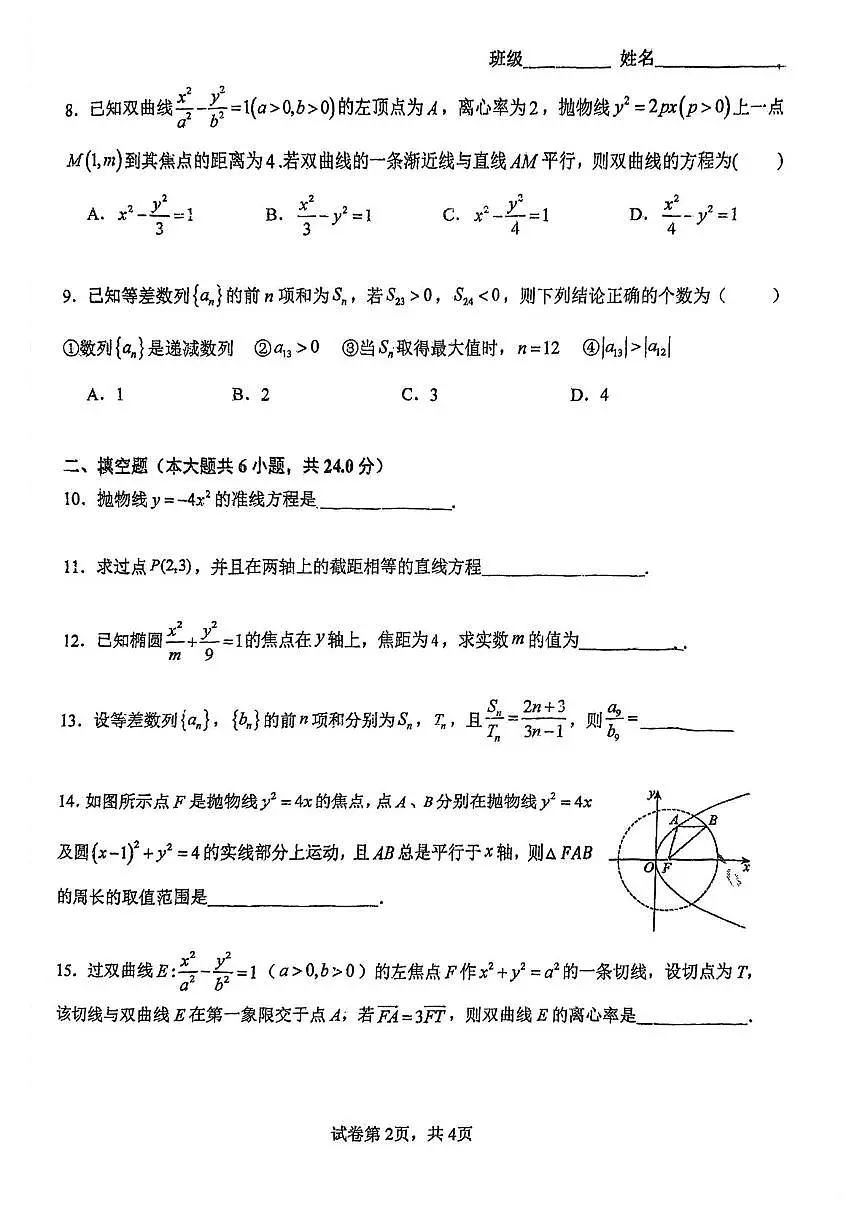 班级__________ 姓名______________
8．已知双曲线 x²/a² - y²/b² =1(a>0,b>0)的左顶点为A，离心率为2，抛物线y²=2px(p>0)上一点
M(1,m)到其焦点的距离为4.若双曲线的一条渐近线与直线AM平行，则双曲线的方程为(　　)
A．x² - y²/3 =1　B．x²/3 - y² =1　C．x² - y²/4 =1　D．x²/4 - y² =1
9．已知等差数列{aₙ}的前n项和为Sₙ，若S₂₃>0，S₂₄<0，则下列结论正确的个数为（　　）
①数列{aₙ}是递减数列　②a₁₃>0　③当Sₙ取得最大值时，n=12　④|a₁₃|>|a₁₂|
A．1　B．2　C．3　D．4
二、填空题（本大题共6小题，共24.0分）
10．抛物线y=-4x²的准线方程是______________.
11．求过点P(2,3)，并且在两轴上的截距相等的直线方程________________.
12．已知椭圆 x²/m + y²/9 =1的焦点在y轴上，焦距为4，求实数m的值为__________.
13．设等差数列{aₙ}，{bₙ}的前n项和分别为Sₙ，Tₙ，且 Sₙ/Tₙ = (2n+3)/(3n-1)，则 a₉/b₉ =__________
14．如图所示点F是抛物线y²=4x的焦点，点A、B分别在抛物线y²=4x
及圆(x-1)²+y²=4的实线部分上运动，且AB总是平行于x轴，则△FAB
的周长的取值范围是________________.
y
A B
O F x
15．过双曲线E: x²/a² - y²/b² =1（a>0,b>0）的左焦点F作x²+y²=a²的一条切线，设切点为T，
该切线与双曲线E在第一象限交于点A，若F͞A͞=3F͞T͞，则双曲线E的离心率是____________.
试卷第2页，共4页